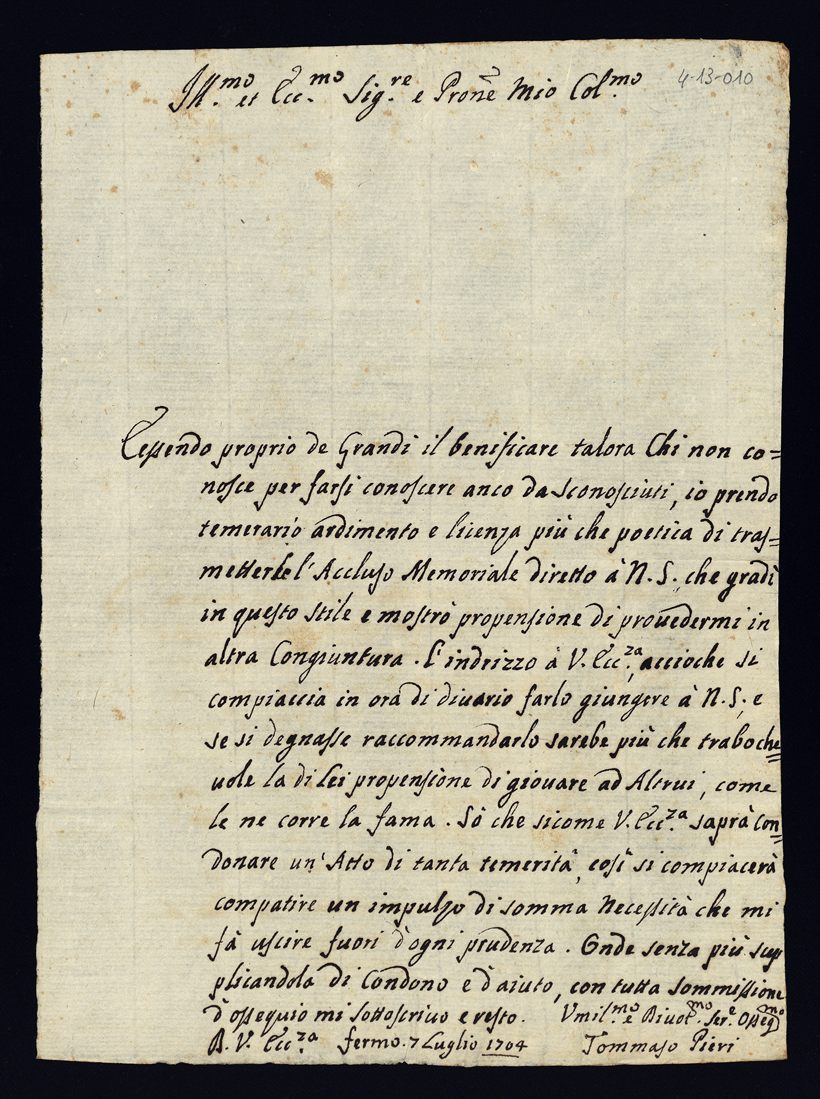 Ill.mo et Ecc.mo Sig.re e Prone Mio Col.mo
4-13-010
Essendo proprio de Grandi il benificare talora Chi non co=
nosce per farsi conoscere anco da sconosciuti, io prendo
temerario ardimento e licenza più che poetica di tras=
metterle l'Accluso Memoriale diretto à N.S., che gradì
in questo stile e mostrò propensione di provedermi in
altra Congiuntura. L'indrizzo à V. Ecc.za, accioche si
compiaccia in ora di divario farlo giungere à N.S., e
se si degnasse raccommandarlo sarebe più che traboche=
vole la di Lei propensione di giovare ad Altrui, come
le ne corre la fama. Sò che sicome V. Ecc.za saprà Con=
donare un'Atto di tanta temerità, così si compiacerà
compatire un impulso di somma Necessità che mi
fà uscire fuori d'ogni prudenza. Onde senza più sup
plicandola di Condono e d'aiuto, con tutta sommissione
d'ossequio mi sottoscrivo e resto. Vmil.mo e Divot.mo Ser.e Osseq.mo
D. V. Ecc.za fermo. 7 Luglio 1704 Tommaso Pieri